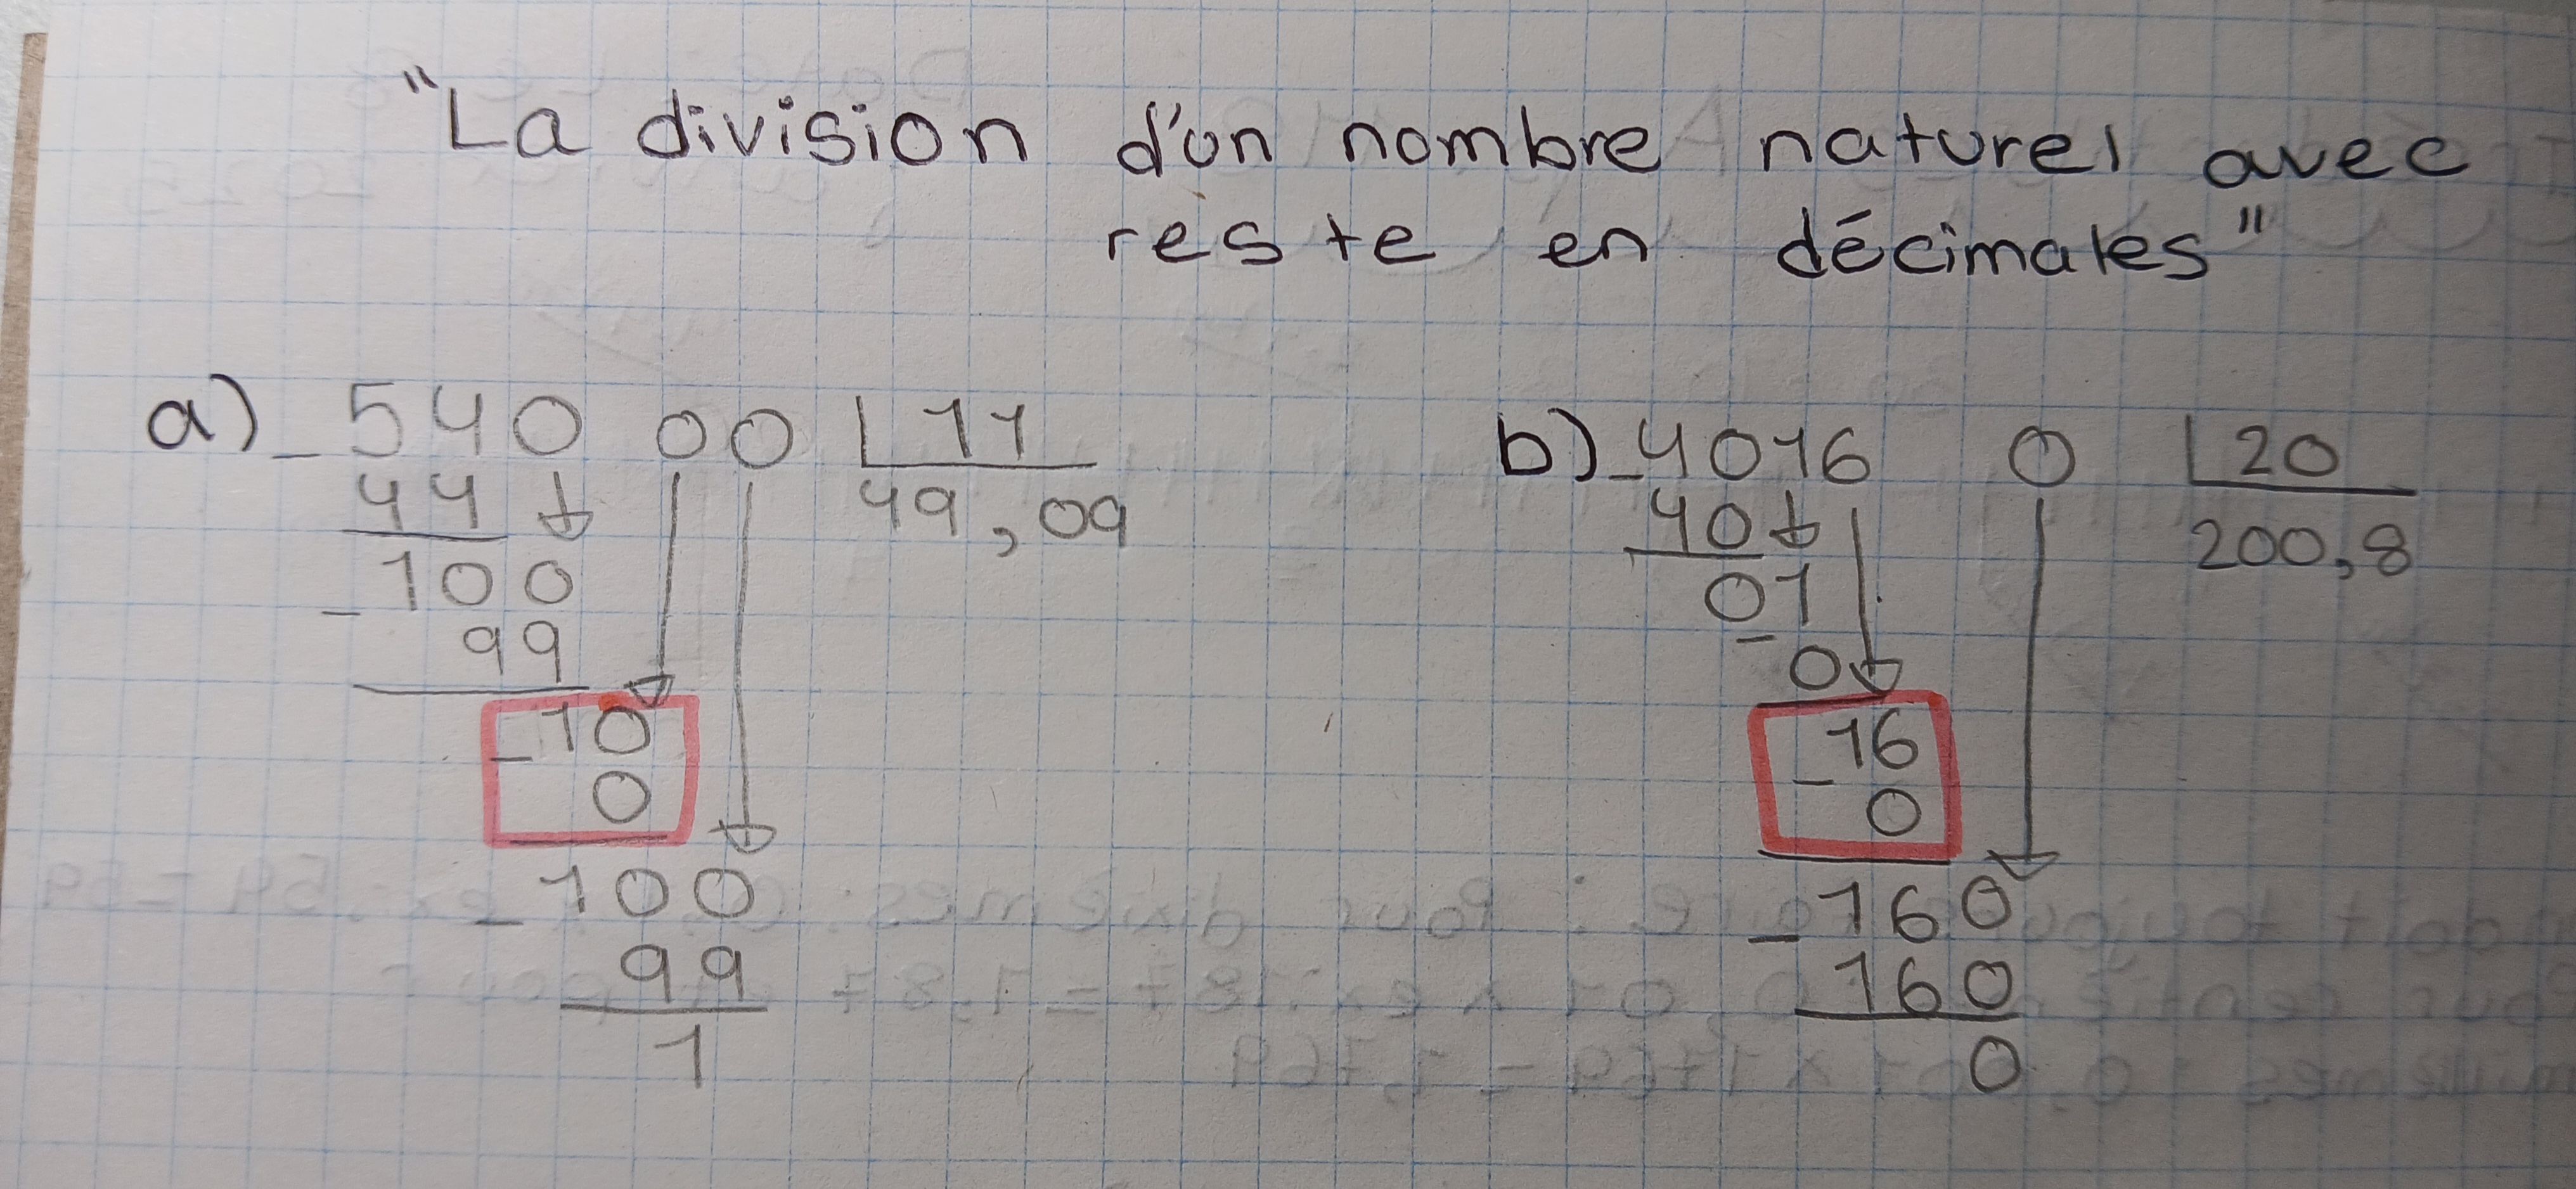 "La division d'un nombre naturel avec
reste en décimales"
a) - 540 00 | 11
44 49,09
- 100
99
- 10
0
- 100
99
1
b) - 4016 0 | 20
40 200,8
01
- 0
- 16
0
- 160
160
0